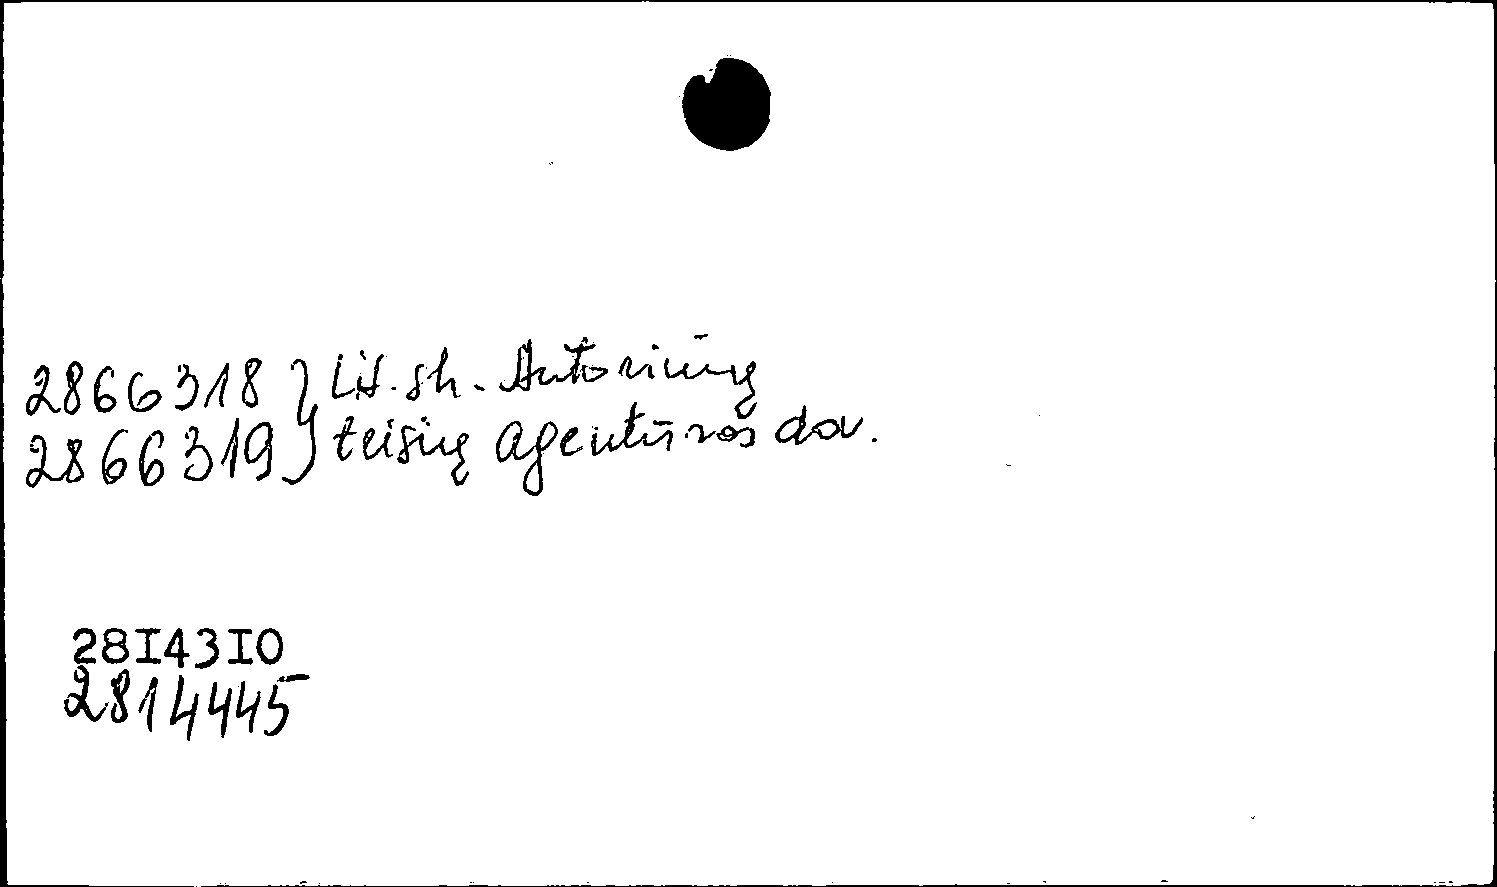 2866318 } Lit. sk. Autorinių
2866319 } teisių agentūros dov.
28I43I0
2814445